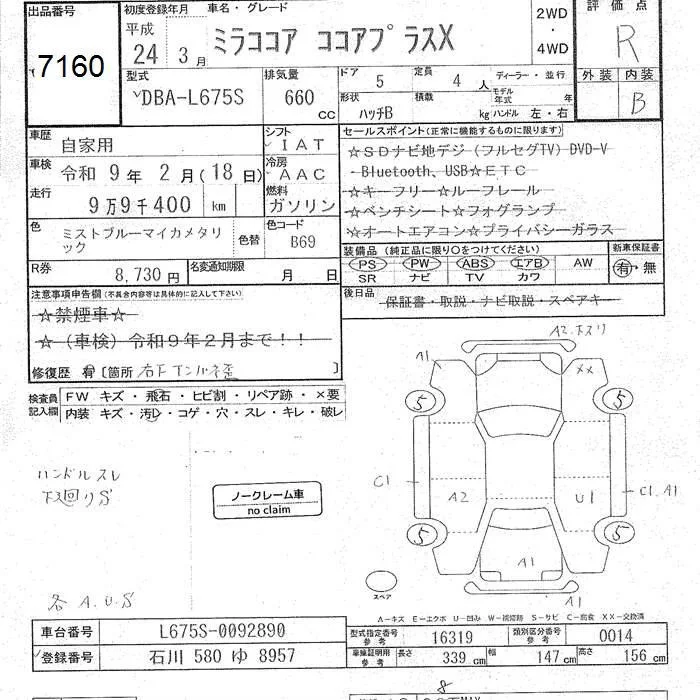 出品番号
7160
初度登録年月
平成
24年3月
車名・グレード
ミラココア ココアプラスX
2WD
・
4WD
評価点
R
外装 内装
B
型式
DBA-L675S
排気量
660 cc
ドア 5
定員 4 人
ディーラー・並行
形状 ハッチB
積載 kg
モデル年式 年
ハンドル 左・右
車歴 自家用
車検 令和 9年 2月(18日)
走行 9万9千400 km
色 ミストブルーマイカメタリック
色替
シフト IAT
冷房 AAC
燃料 ガソリン
色コード B69
R券 8,730円
名変通知期限 月 日
セールスポイント(正常に機能するものに限ります)
☆SDナビ地デジ(フルセグTV)DVD-V
・Bluetooth、USB☆ETC
☆キーフリー☆ルーフレール
☆ベンチシート☆フォグランプ
☆オートエアコン☆プライバシーガラス
装備品(純正品に限り○をつけてください)
PS PW ABS エアB AW
SR ナビ TV カワ
新車保証書
有・無
後日品 保証書・取説・ナビ取説・スペアキー
注意事項申告欄(不具合内容等は具体的に記入して下さい)
☆禁煙車☆
☆(車検)令和9年2月まで!!
修復歴 有 [箇所 右下インパネ歪 ]
検査員記入欄
FW キズ・飛石・ヒビ割・リペア跡・×要
内装 キズ・汚レ・コゲ・穴・スレ・キレ・破レ
ハンドルスレ
下廻りS
ノークレーム車
no claim
各A.U.S
A2.ホスリ
A1
XX
5
5
C1
A2
U1
C1.A1
5
5
A1
A1
スペア
A-キズ E-エクボ U-凹み W-補修跡 S-サビ C-腐食 XX-交換済
車台番号 L675S-0092890
登録番号 石川 580 ゆ 8957
型式指定番号 参考 16319
類別区分番号 参考 0014
車庫証明用 参考 長さ 339 cm 幅 147 cm 高さ 156 cm
8